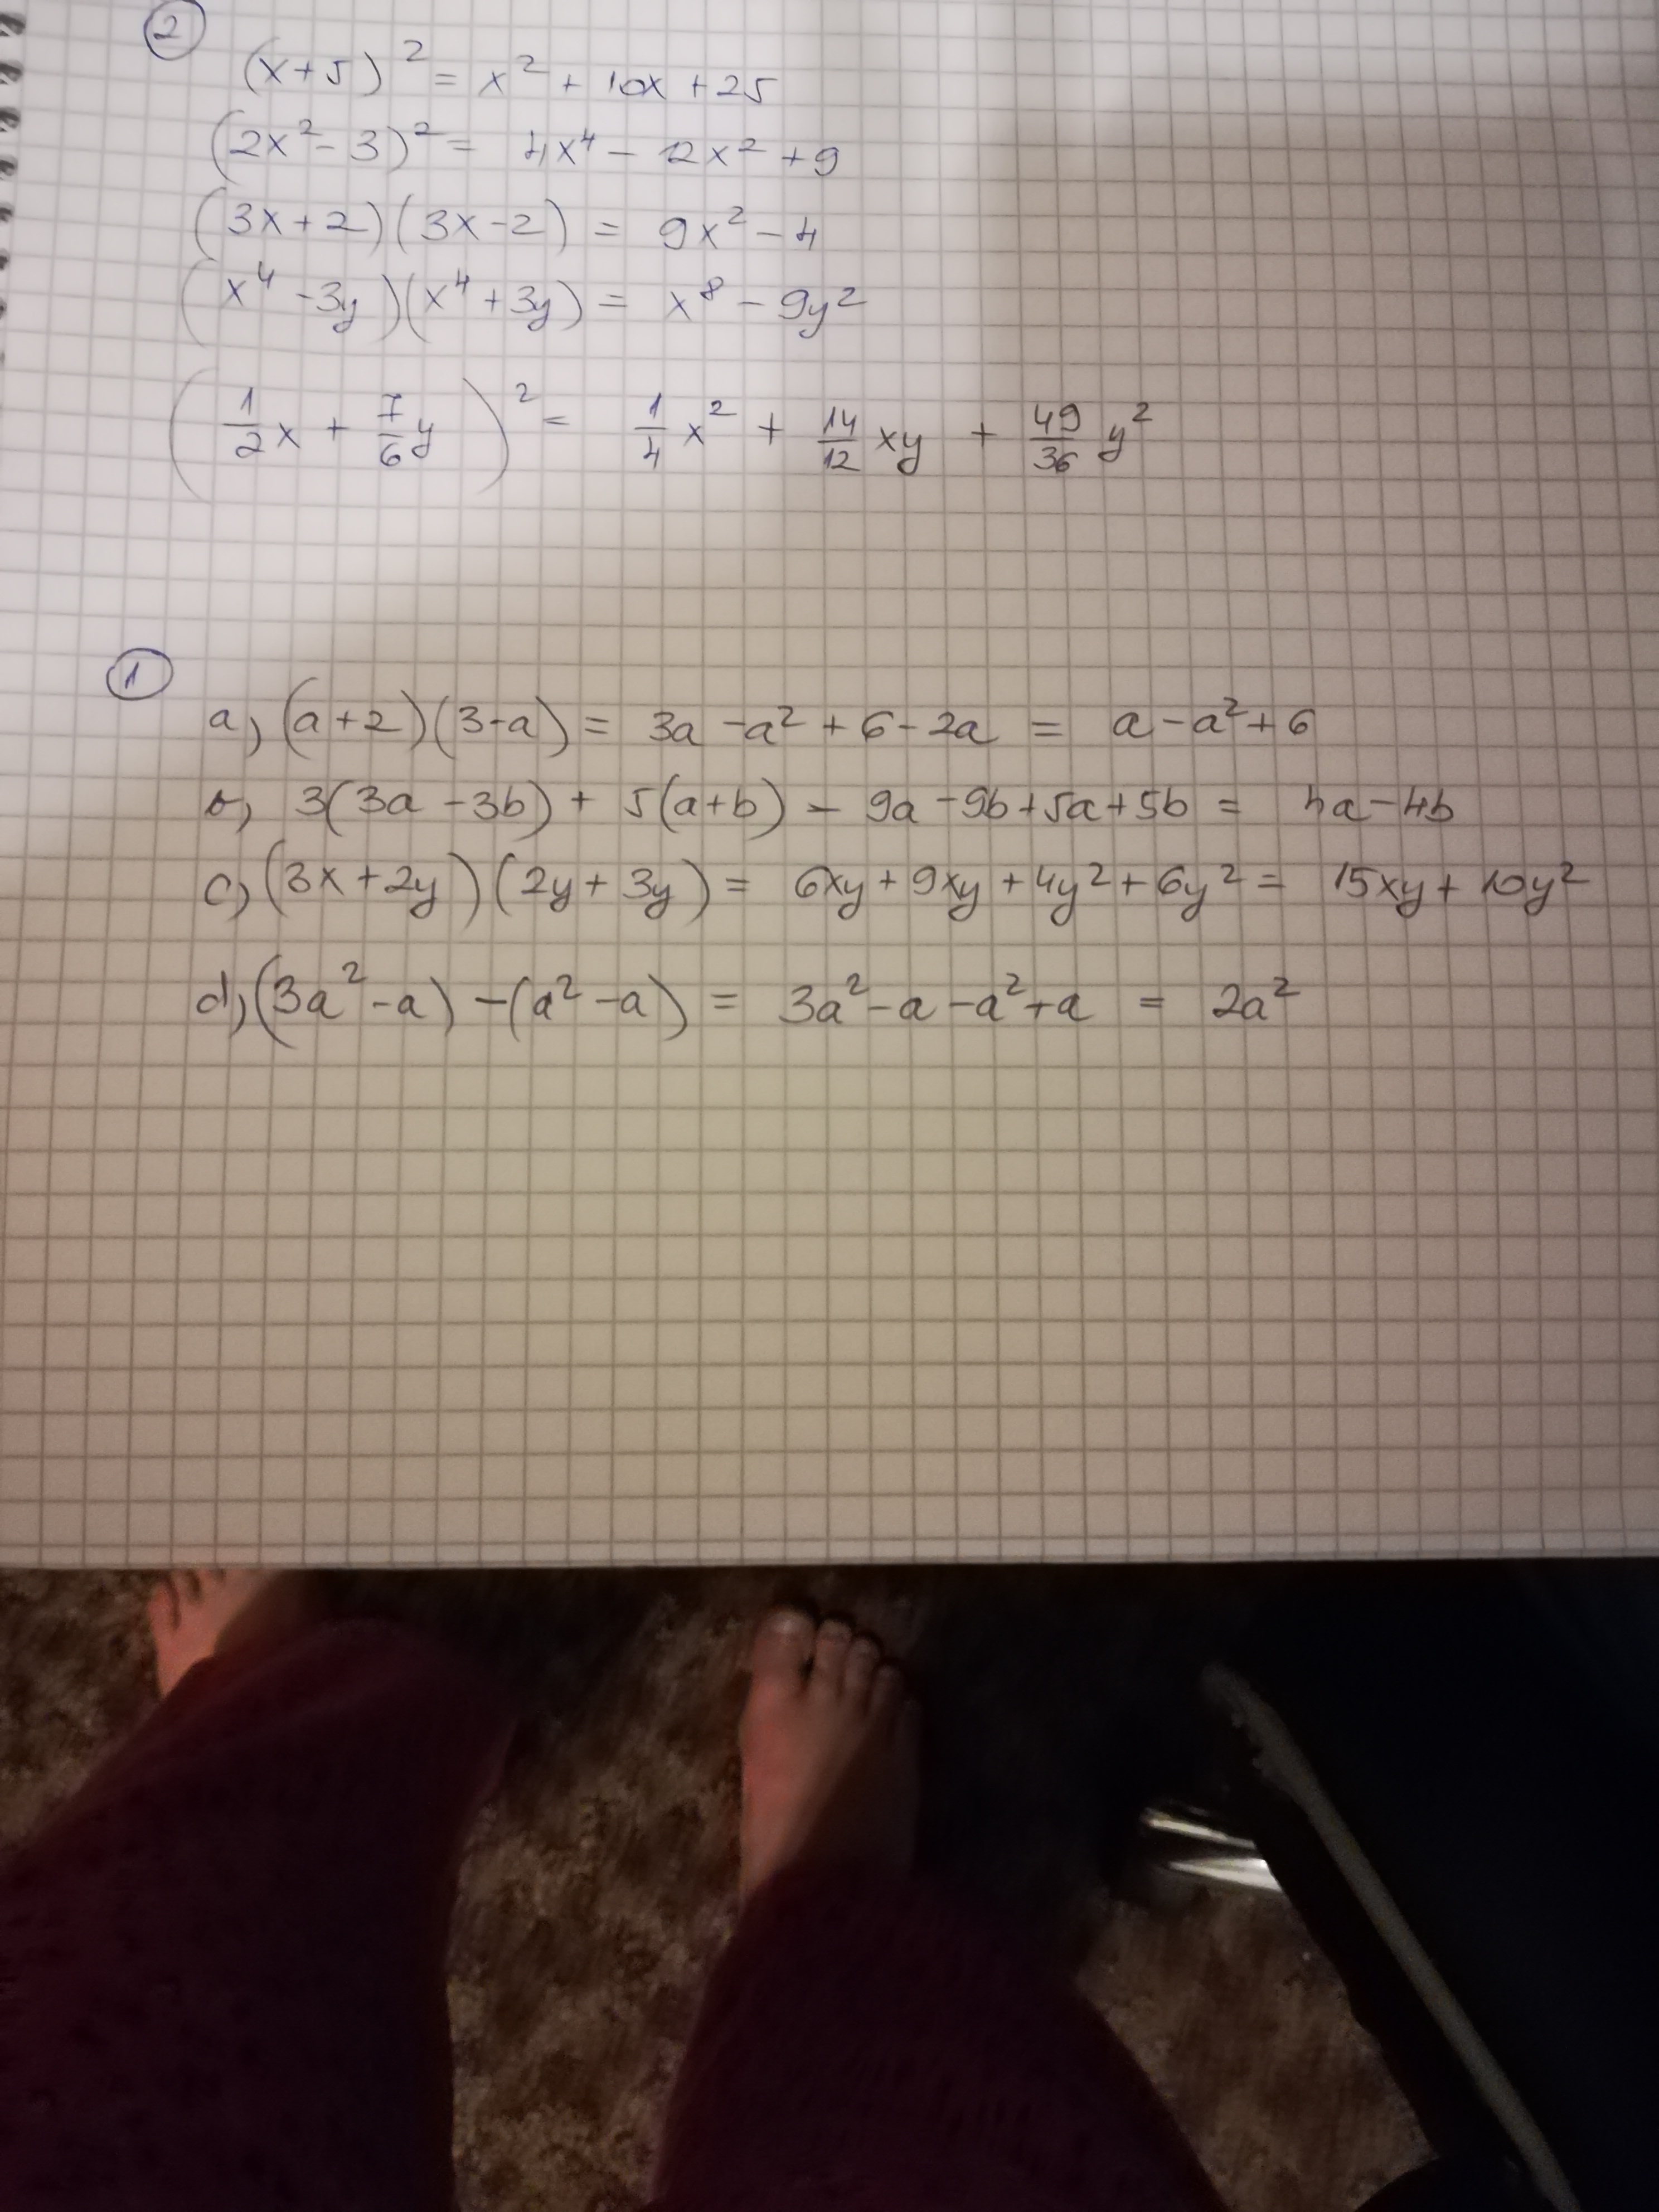 2
(x+5)² = x² + 10x + 25
(2x² - 3)² = 4x⁴ - 12x² + 9
(3x+2)(3x-2) = 9x² - 4
(x⁴ - 3y)(x⁴ + 3y) = x⁸ - 9y²
(1/2 x + 7/6 y)² = 1/4 x² + 14/12 xy + 49/36 y²
1
a) (a+2)(3-a) = 3a - a² + 6 - 2a = a - a² + 6
b) 3(3a - 3b) + 5(a+b) - 9a - 9b + 5a + 5b = 4a - 4b
c) (3x + 2y)(2y + 3y) = 6xy + 9xy + 4y² + 6y² = 15xy + 10y²
d) (3a² - a) - (a² - a) = 3a² - a - a² + a = 2a²